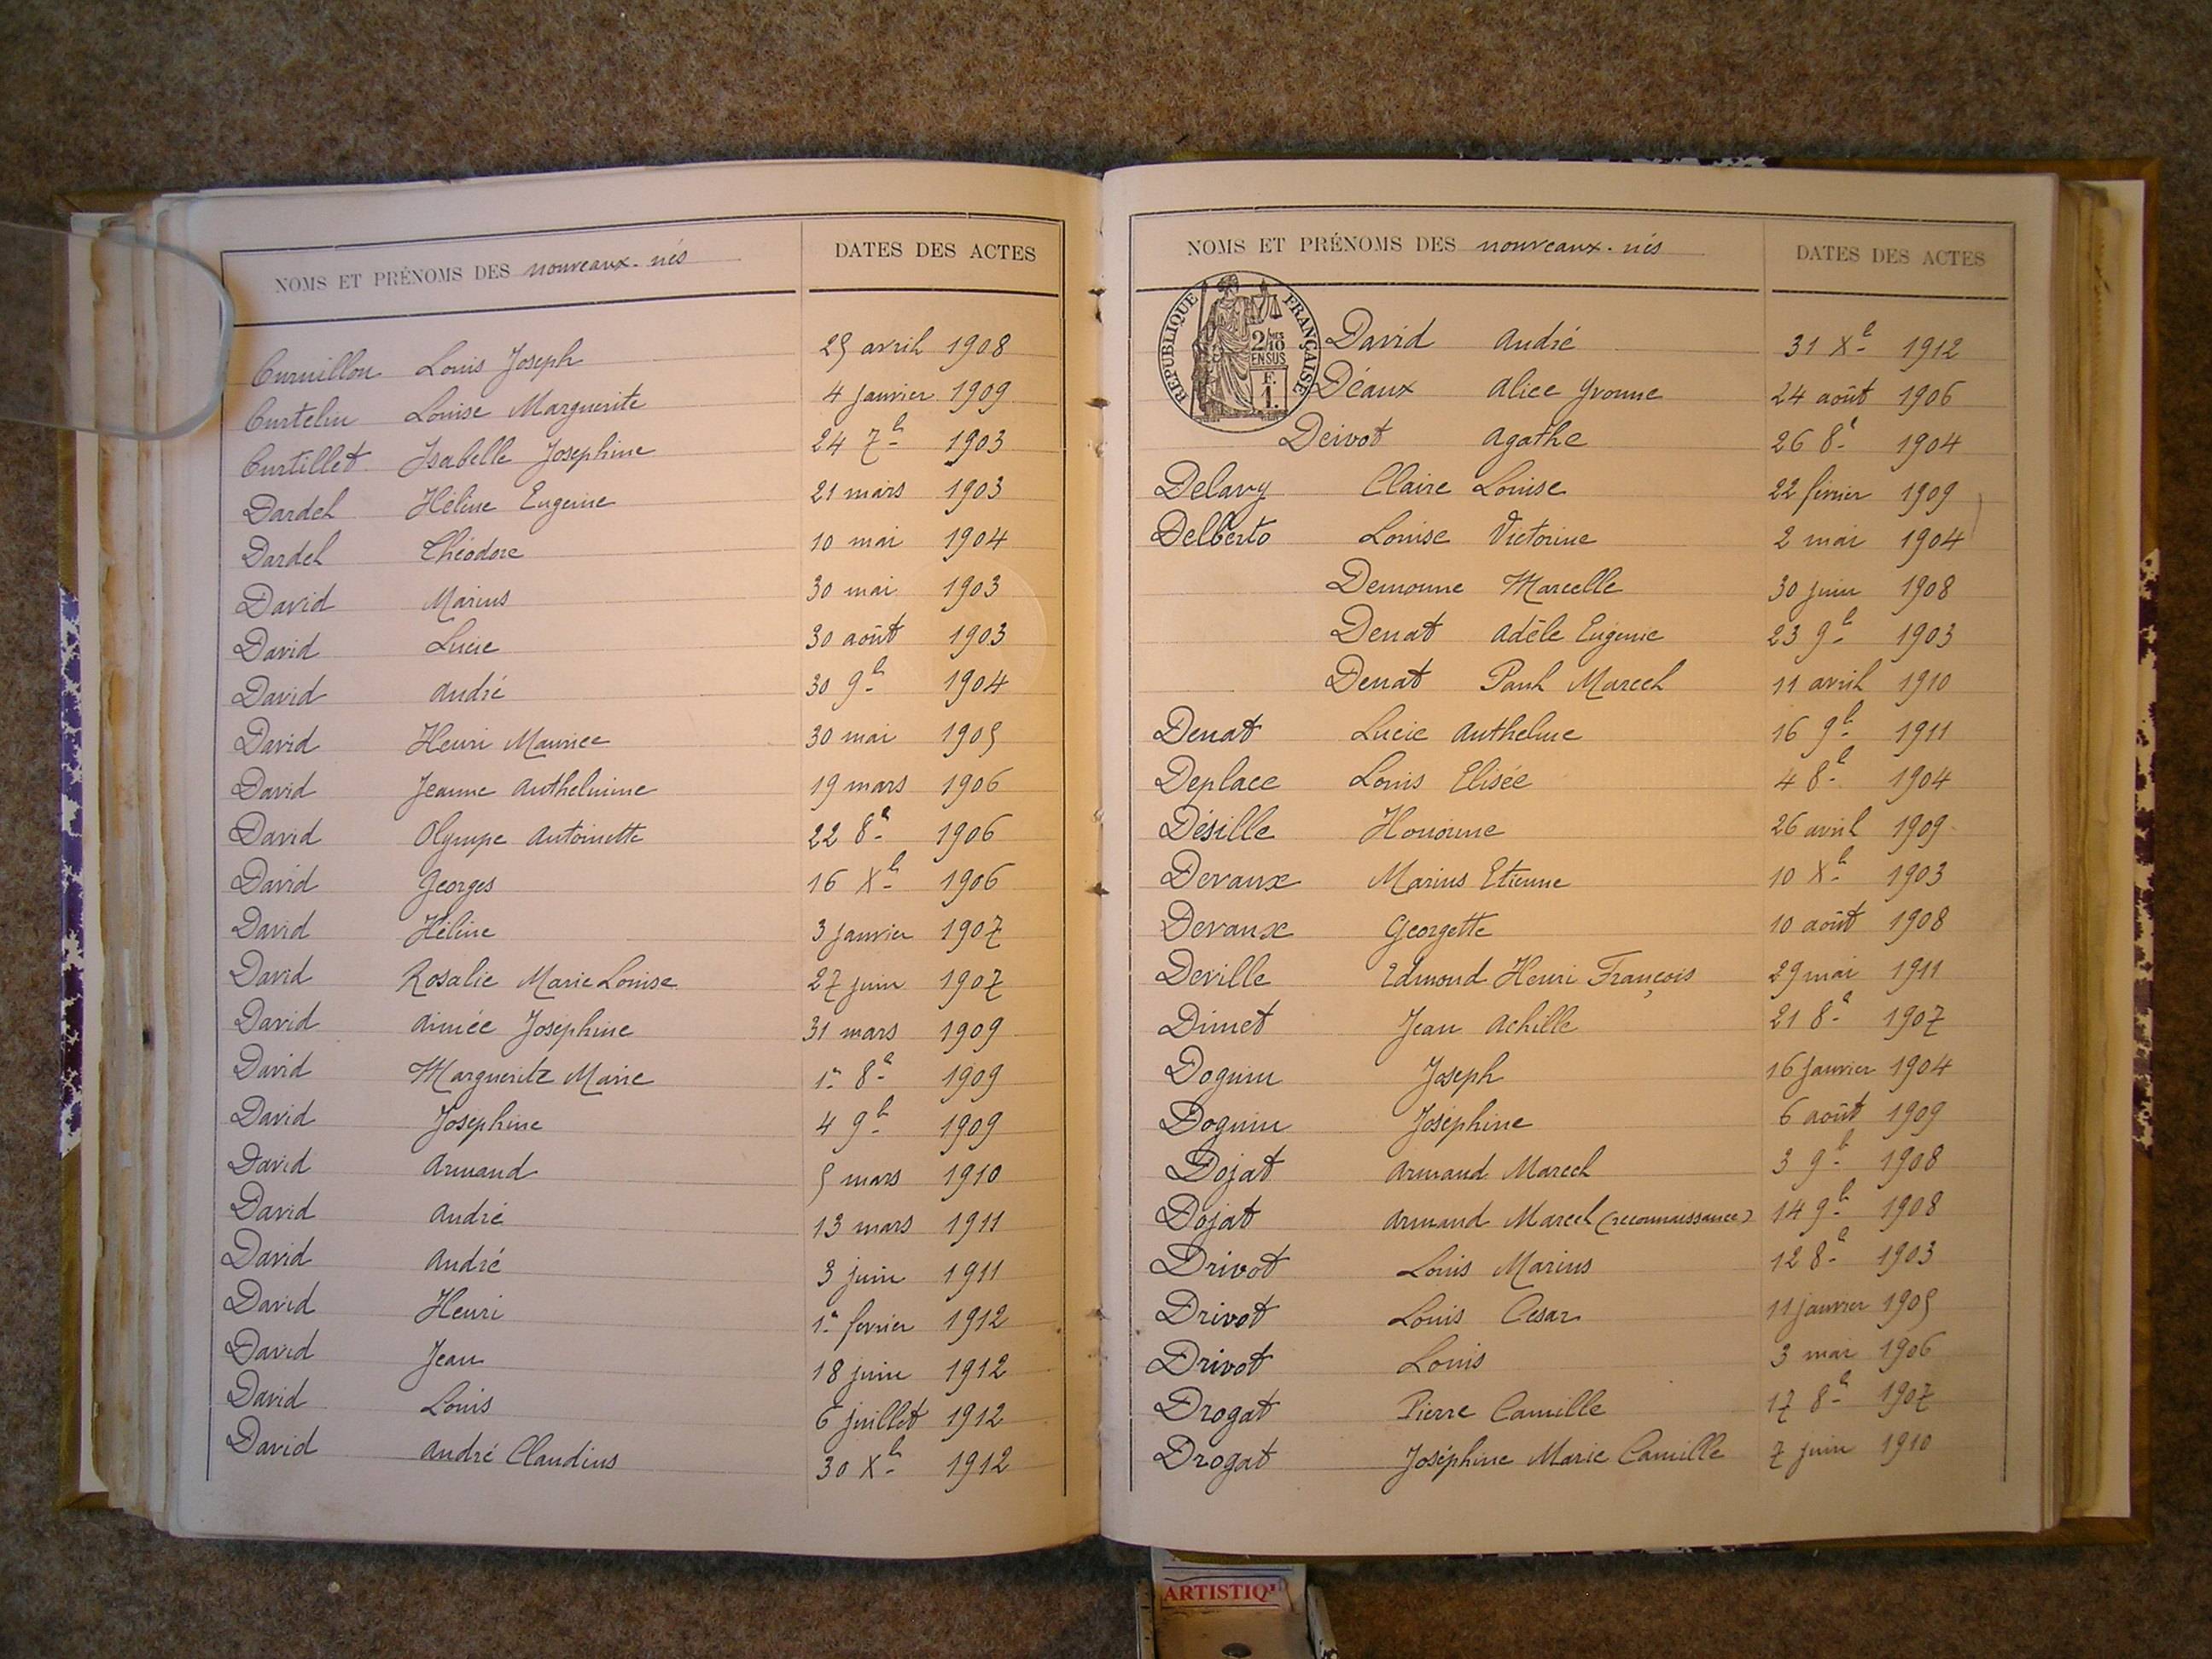 NOMS ET PRÉNOMS DES nouveaux-nés DATES DES ACTES
Curnillon Louis Joseph 25 avril 1908
Curtelin Louise Marguerite 4 janvier 1909
Curtillet Isabelle Josephine 24 7b 1903
Dardel Hélène Eugenie 21 mars 1903
Dardel Théodore 10 mai 1904
David Marius 30 mai 1903
David Lucie 30 août 1903
David André 30 9b 1904
David Henri Maurice 30 mai 1905
David Jeanne Anthelmine 19 mars 1906
David Olympe Antoinette 22 8e 1906
David Georges 16 Xb 1906
David Hélène 3 janvier 1907
David Rosalie Marie Louise 27 juin 1907
David Aimée Joséphine 31 mars 1909
David Marguerite Marie 1er 8e 1909
David Joséphine 4 9b 1909
David Armand 5 mars 1910
David André 13 mars 1911
David André 3 juin 1911
David Henri 1er fevrier 1912
David Jean 18 juin 1912
David Louis 6 juillet 1912
David André Claudius 30 Xb 1912
NOMS ET PRÉNOMS DES nouveaux-nés DATES DES ACTES
RÉPUBLIQUE FRANÇAISE
2/10 EN SUS
F. 1.
David André 31 Xe 1912
Déaux Alice Yvonne 24 août 1906
Deivot Agathe 26 8e 1904
Delavy Claire Louise 22 février 1909
Delberto Louise Victorine 2 mai 1904
Demonne Marcelle 30 juin 1908
Denat Adèle Eugenie 23 9b 1903
Denat Paul Marcel 11 avril 1910
Denat Lucie Anthelme 16 9b 1911
Deplace Louis Elisée 4 8e 1904
Désille Honorine 26 avril 1909
Devaux Marius Etienne 10 Xb 1903
Devaux Georgette 10 août 1908
Deville Edmond Henri François 29 mai 1911
Dimet Jean Achille 21 8e 1907
Doguin Joseph 16 janvier 1904
Doguin Joséphine 6 août 1909
Dojat Armand Marcel 3 9b 1908
Dojat Armand Marcel (reconnaissance) 14 9b 1908
Drivot Louis Marius 12 8e 1903
Drivot Louis Cesar 11 janvier 1905
Drivot Louis 3 mai 1906
Drogat Pierre Camille 17 8e 1907
Drogat Joséphine Marie Camille 7 juin 1910
ARTISTIQ